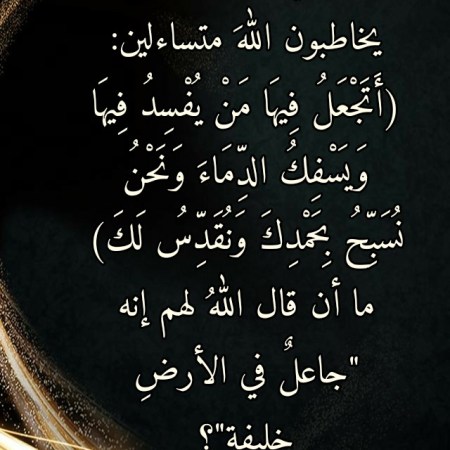 يخاطبون اللهَ متساءلين:
(أَتَجْعَلُ فِيهَا مَنْ يُفْسِدُ فِيهَا
وَيَسْفِكُ الدِّمَاءَ وَنَحْنُ
نُسَبِّحُ بِحَمْدِكَ وَنُقَدِّسُ لَكَ)
ما أن قال اللهُ لهم إنه
"جاعلٌ في الأرضِ
خليفة"؟